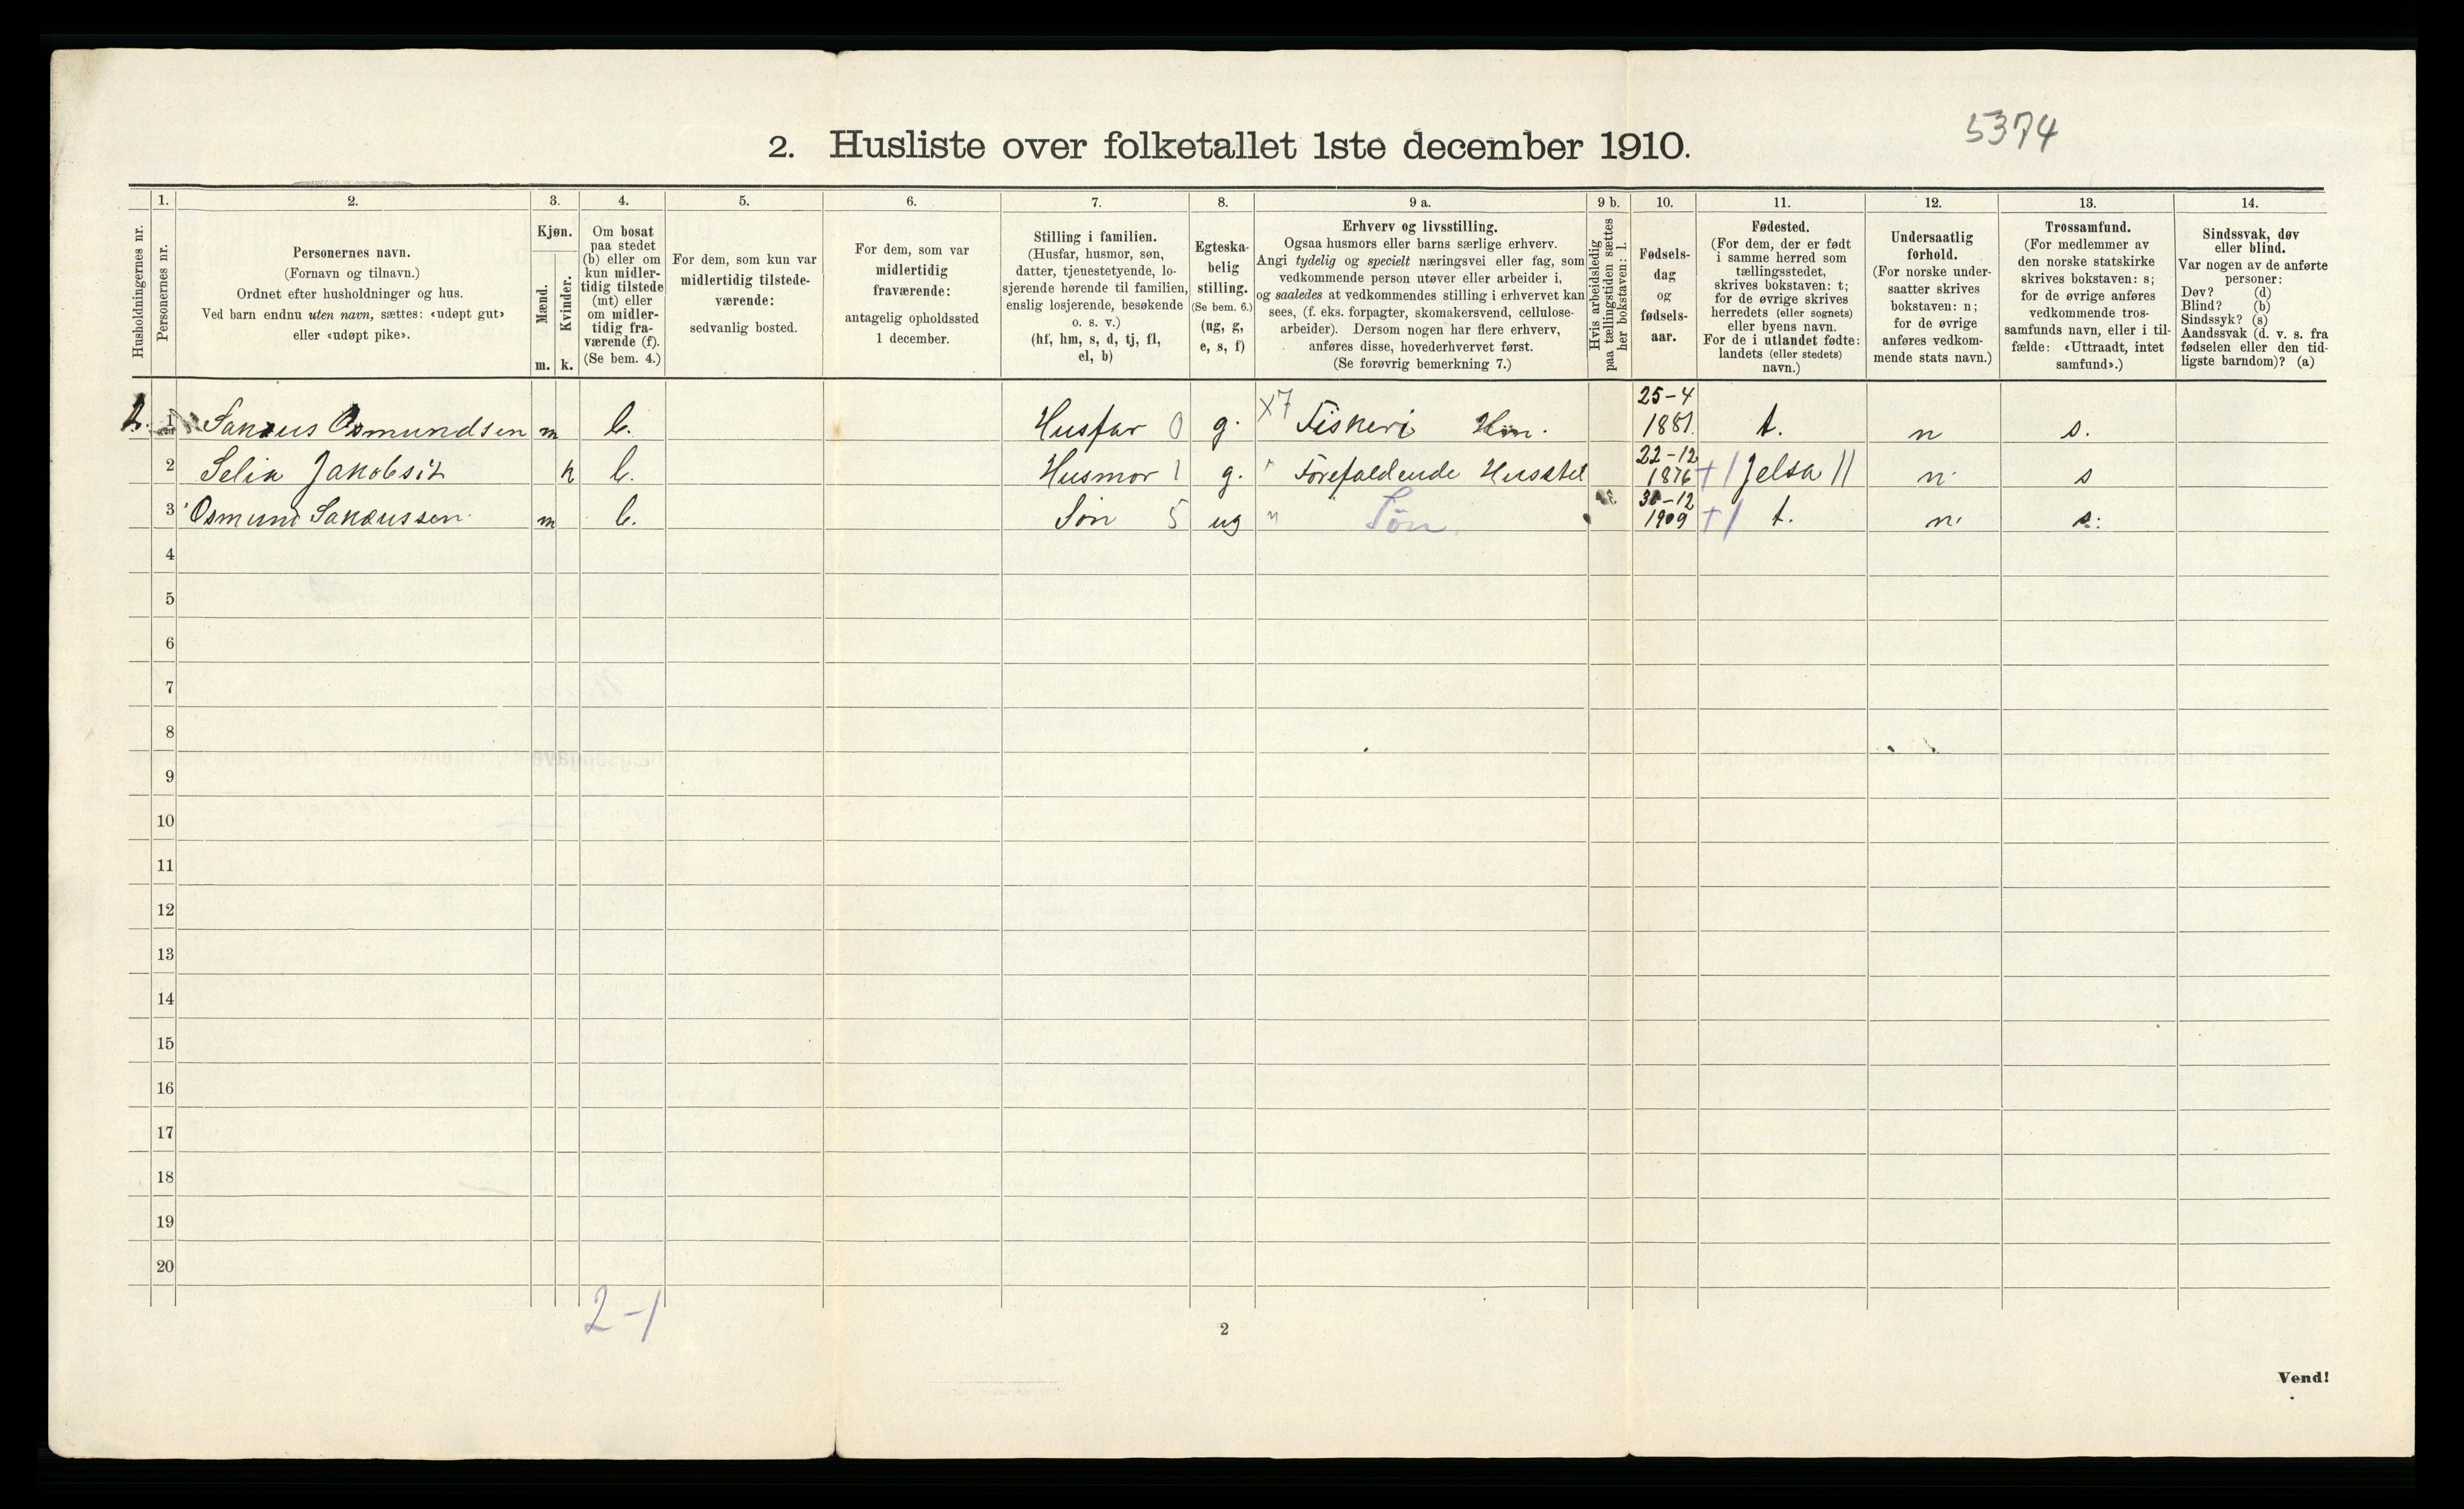 5374
2. Husliste over folketallet 1ste december 1910.
Husholdningernes nr.
1.
Personernes nr.
2.
Personernes navn.
(Fornavn og tilnavn.)
Ordnet efter husholdninger og hus.
Ved barn endnu uten navn, sættes: «udøpt gut»
eller «udøpt pike».
3.
Kjøn.
Mænd.
m.
Kvinder.
k.
4.
Om bosat
paa stedet
(b) eller om
kun midler-
tidig tilstede
(mt) eller
om midler-
tidig fra-
værende (f).
(Se bem. 4.)
5.
For dem, som kun var
midlertidig tilstede-
værende:
sedvanlig bosted.
6.
For dem, som var
midlertidig
fraværende:
antagelig opholdssted
1 december.
7.
Stilling i familien.
(Husfar, husmor, søn,
datter, tjenestetyende, lo-
sjerende hørende til familien,
enslig losjerende, besøkende
o. s. v.)
(hf, hm, s, d, tj, fl,
el, b)
8.
Egteska-
belig
stilling.
(Se bem. 6.)
(ug, g,
e, s, f)
9 a.
Erhverv og livsstilling.
Ogsaa husmors eller barns særlige erhverv.
Angi tydelig og specielt næringsvei eller fag, som
vedkommende person utøver eller arbeider i,
og saaledes at vedkommendes stilling i erhvervet kan
sees, (f. eks. forpagter, skomakersvend, cellulose-
arbeider). Dersom nogen har flere erhverv,
anføres disse, hovederhvervet først.
(Se forøvrig bemerkning 7.)
9 b.
Hvis arbeidsledig
paa tællingstiden sættes
her bokstaven: l.
10.
Fødsels-
dag
og
fødsels-
aar.
11.
Fødested.
(For dem, der er født
i samme herred som
tællingsstedet,
skrives bokstaven: t;
for de øvrige skrives
herredets (eller sognets)
eller byens navn.
For de i utlandet fødte:
landets (eller stedets)
navn.)
12.
Undersaatlig
forhold.
(For norske under-
saatter skrives
bokstaven: n;
for de øvrige
anføres vedkom-
mende stats navn.)
13.
Trossamfund.
(For medlemmer av
den norske statskirke
skrives bokstaven: s;
for de øvrige anføres
vedkommende tros-
samfunds navn, eller i til-
fælde: «Uttraadt, intet
samfund».)
14.
Sindssvak, døv
eller blind.
Var nogen av de anførte
personer:
Døv? (d)
Blind? (b)
Sindssyk? (s)
Aandssvak (d. v. s. fra
fødselen eller den tid-
ligste barndom)? (a)
1 Osmundsen m b. Husfar 0 g. X7 Fiskeri 25-4 1881. t. n s.
2 Selia Jakobsit k b. Husmor 1 g. " Forefaldende Husstel 22-12 1876 +/ Jelsa // n. s
3 Osmund m b. Søn 5 ug " Søn 30-12 1909 +/ t. n. s.
4
5
6
7
8
9
10
11
12
13
14
15
16
17
18
19
20
2-1
2
Vend!